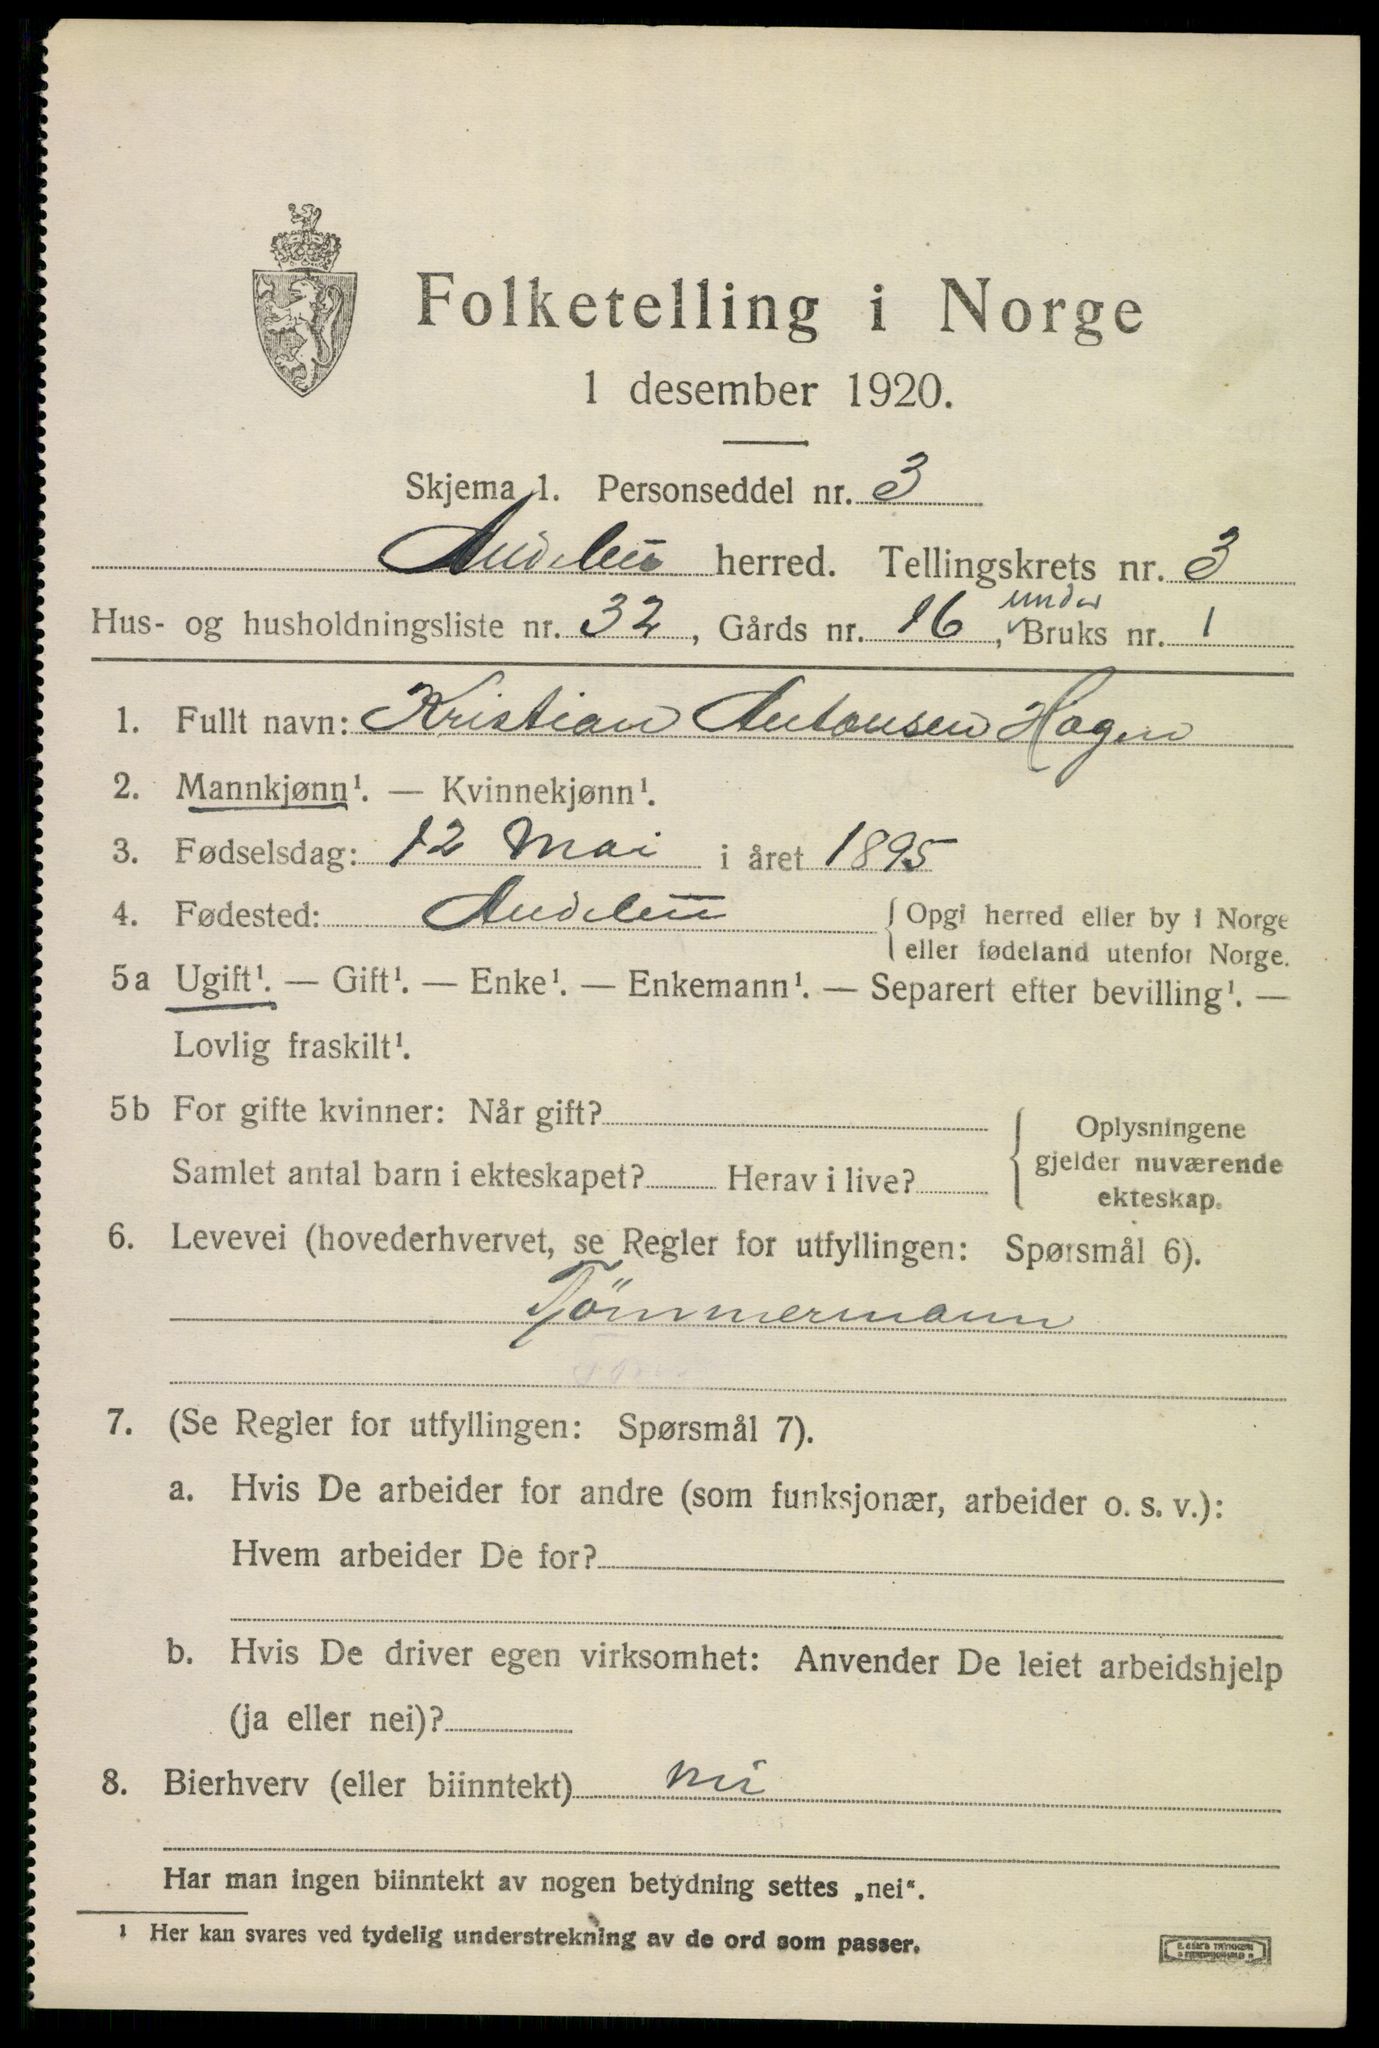 Folketelling i Norge
1 desember 1920.
Skjema 1. Personseddel nr. 3
Andebu herred. Tellingskrets nr. 3
under
Hus- og husholdningsliste nr. 32, Gårds nr. 16, Bruks nr. 1
1. Fullt navn: Kristian Antonsen Hagen
2. Mannkjønn¹. — Kvinnekjønn¹.
3. Fødselsdag: 12 Mai i året 1895
4. Fødested: Andebu { Opgi herred eller by i Norge
eller fødeland utenfor Norge.
5a Ugift¹. — Gift¹. — Enke¹. — Enkemann¹. — Separert efter bevilling¹. —
Lovlig fraskilt¹.
5b For gifte kvinner: Når gift?
Samlet antal barn i ekteskapet? Herav i live?
{ Oplysningene
gjelder nuværende
ekteskap.
6. Levevei (hovederhvervet, se Regler for utfyllingen: Spørsmål 6).
Tömmermann
7. (Se Regler for utfyllingen: Spørsmål 7).
a. Hvis De arbeider for andre (som funksjonær, arbeider o. s. v.):
Hvem arbeider De for?
b. Hvis De driver egen virksomhet: Anvender De leiet arbeidshjelp
(ja eller nei)?
8. Bierhverv (eller biinntekt) nei
Har man ingen biinntekt av nogen betydning settes „nei“.
¹ Her kan svares ved tydelig understrekning av de ord som passer.